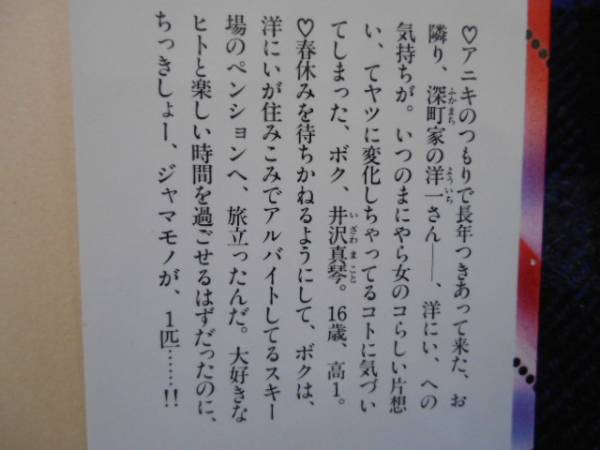 ♡アニキのつもりで長年つきあって来た、お
隣り、深町家の洋一さん――、洋にい、への
気持ちが。いつのまにやら女のコらしい片想
い、てヤツに変化しちゃってるコトに気づい
てしまった、ボク、井沢真琴。16歳、高1。
♡春休みを待ちかねるようにして、ボクは、
洋にいが住みこみでアルバイトしてるスキー
場のペンションへ、旅立ったんだ。大好きな
ヒトと楽しい時間を過ごせるはずだったのに、
ちっきしょー、ジャマモノが、1匹……!!